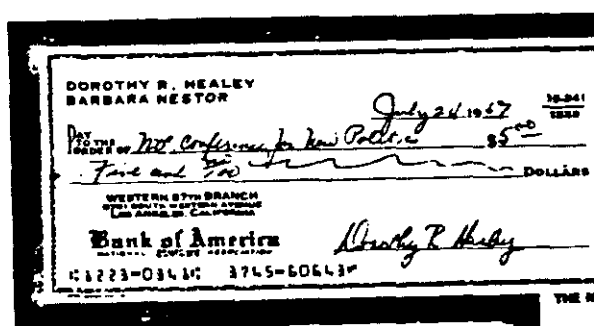 DOROTHY R. HEALEY
BARBARA NESTOR
July 24 1967
PAY TO THE ORDER OF Nat. Conference for New Politics $5.00
Five and no/100 DOLLARS
WESTERN 87TH BRANCH
SOUTH WESTERN AVENUE
LOS ANGELES, CALIFORNIA
Bank of America
NATIONAL SAVINGS ASSOCIATION
Dorothy R Healey
1223-0341 3745-60643
THE